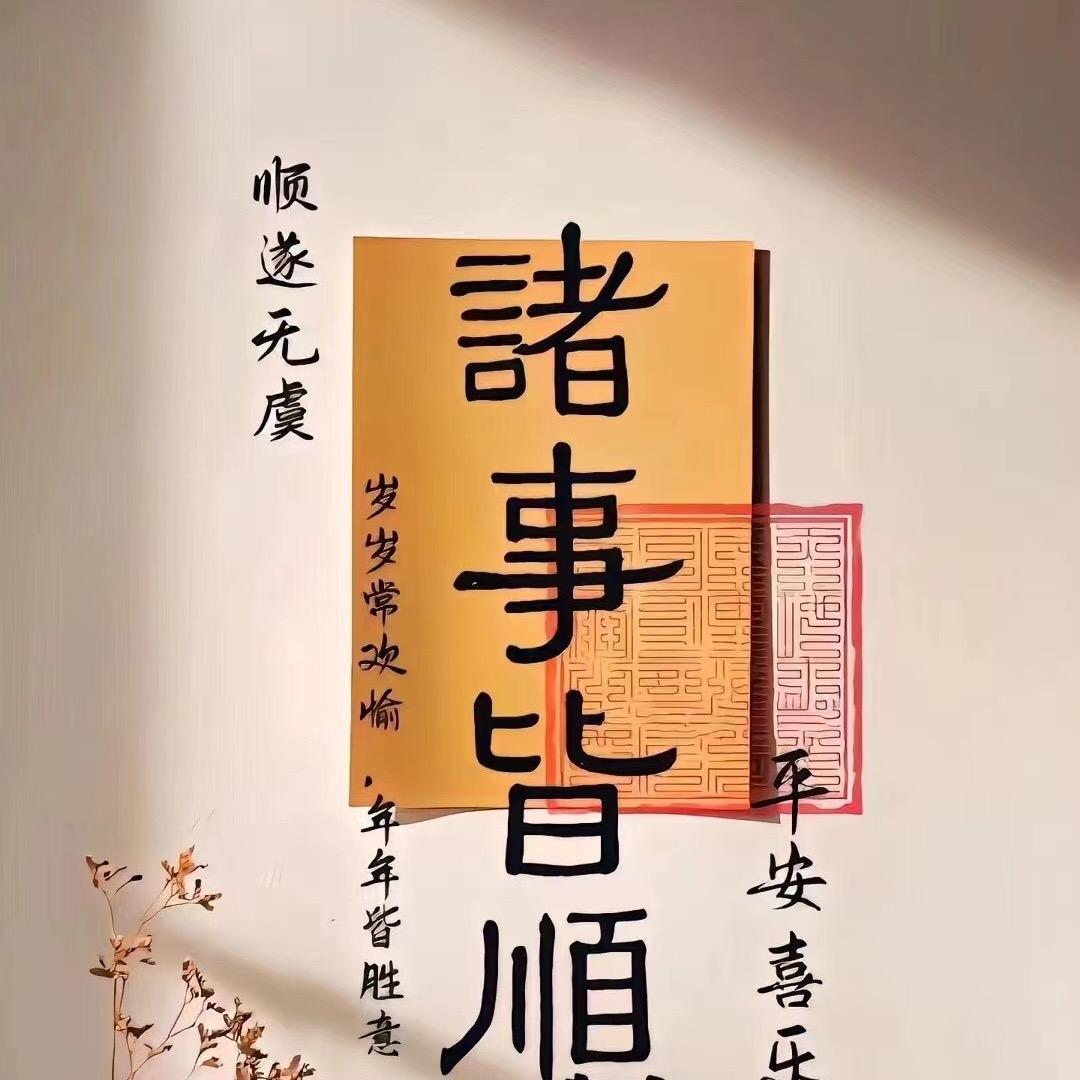 顺遂无虞
岁岁常欢愉，年年皆胜意
諸事皆順
平安喜乐